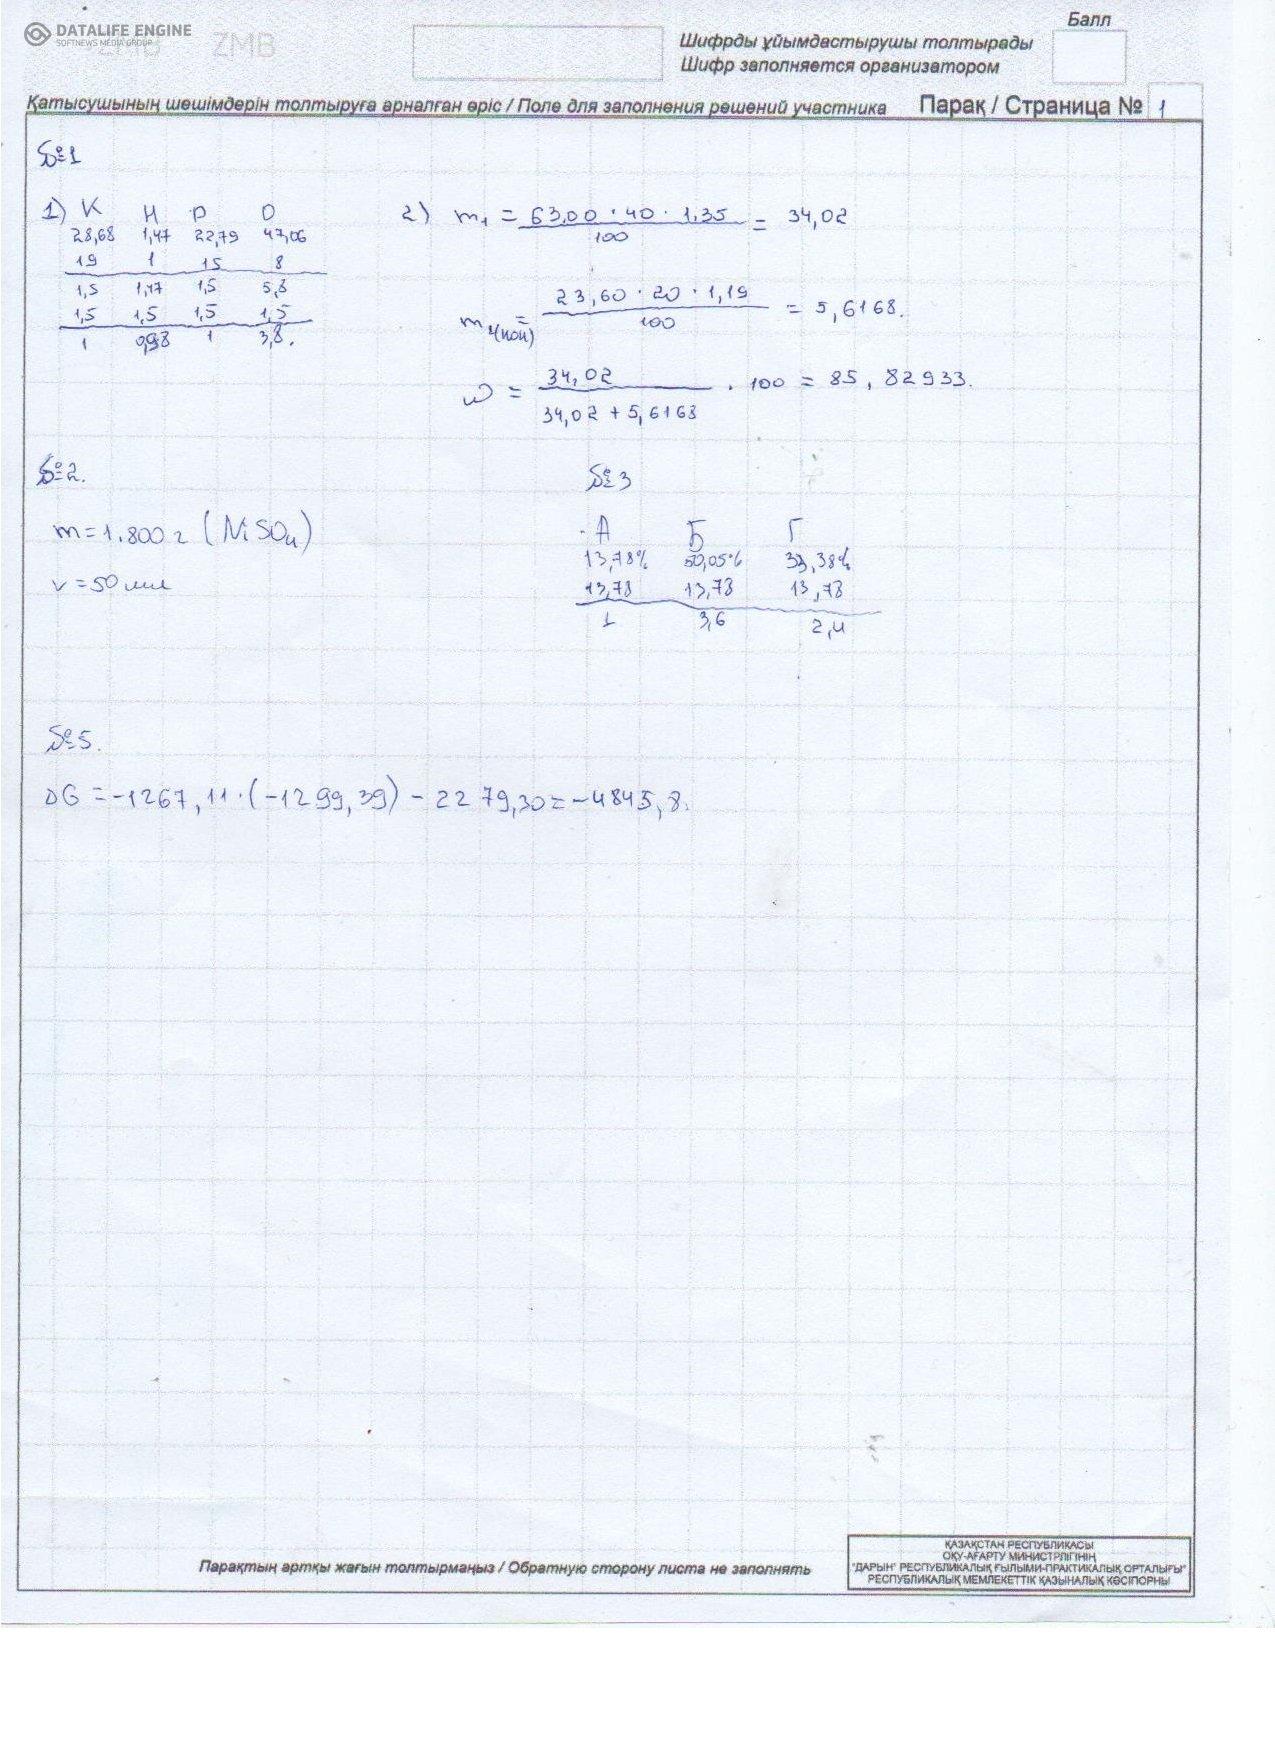 DATALIFE ENGINE
SOFTNEWS MEDIA GROUP
ZMB ZMB
Балл
Шифрды ұйымдастырушы толтырады
Шифр заполняется организатором
Қатысушының шешімдерін толтыруға арналған өріс / Поле для заполнения решений участника Парақ / Страница № 1
№1
1) K H P O
28,68 1,47 22,79 47,06
19 1 15 8
1,5 1,47 1,5 5,8
1,5 1,5 1,5 1,5
1 0,98 1 3,8.
2) m₁ = 63,00 · 40 · 1,35 / 100 = 34,02
= 23,60 · 20 · 1,19 / 100 = 5,6168.
ω = 34,02 / 34,02 + 5,6168 · 100 = 85,82933.
№2.
m = 1.800 г (NiSO₄)
v = 50 мл
№3
А Б Г
13,78% 50,05% 33,38%
13,78 13,78 13,78
1 3,6 2,4
№5.
ΔG = -1267,11·(-1299,39) - 2279,30 = -4845,8.
Парақтың артқы жағын толтырмаңыз / Обратную сторону листа не заполнять
ҚАЗАҚСТАН РЕСПУБЛИКАСЫ
ОҚУ-АҒАРТУ МИНИСТРЛІГІНІҢ
"ДАРЫН" РЕСПУБЛИКАЛЫҚ ҒЫЛЫМИ-ПРАКТИКАЛЫҚ ОРТАЛЫҒЫ"
РЕСПУБЛИКАЛЫҚ МЕМЛЕКЕТТІК ҚАЗЫНАЛЫҚ КӘСІПОРНЫ